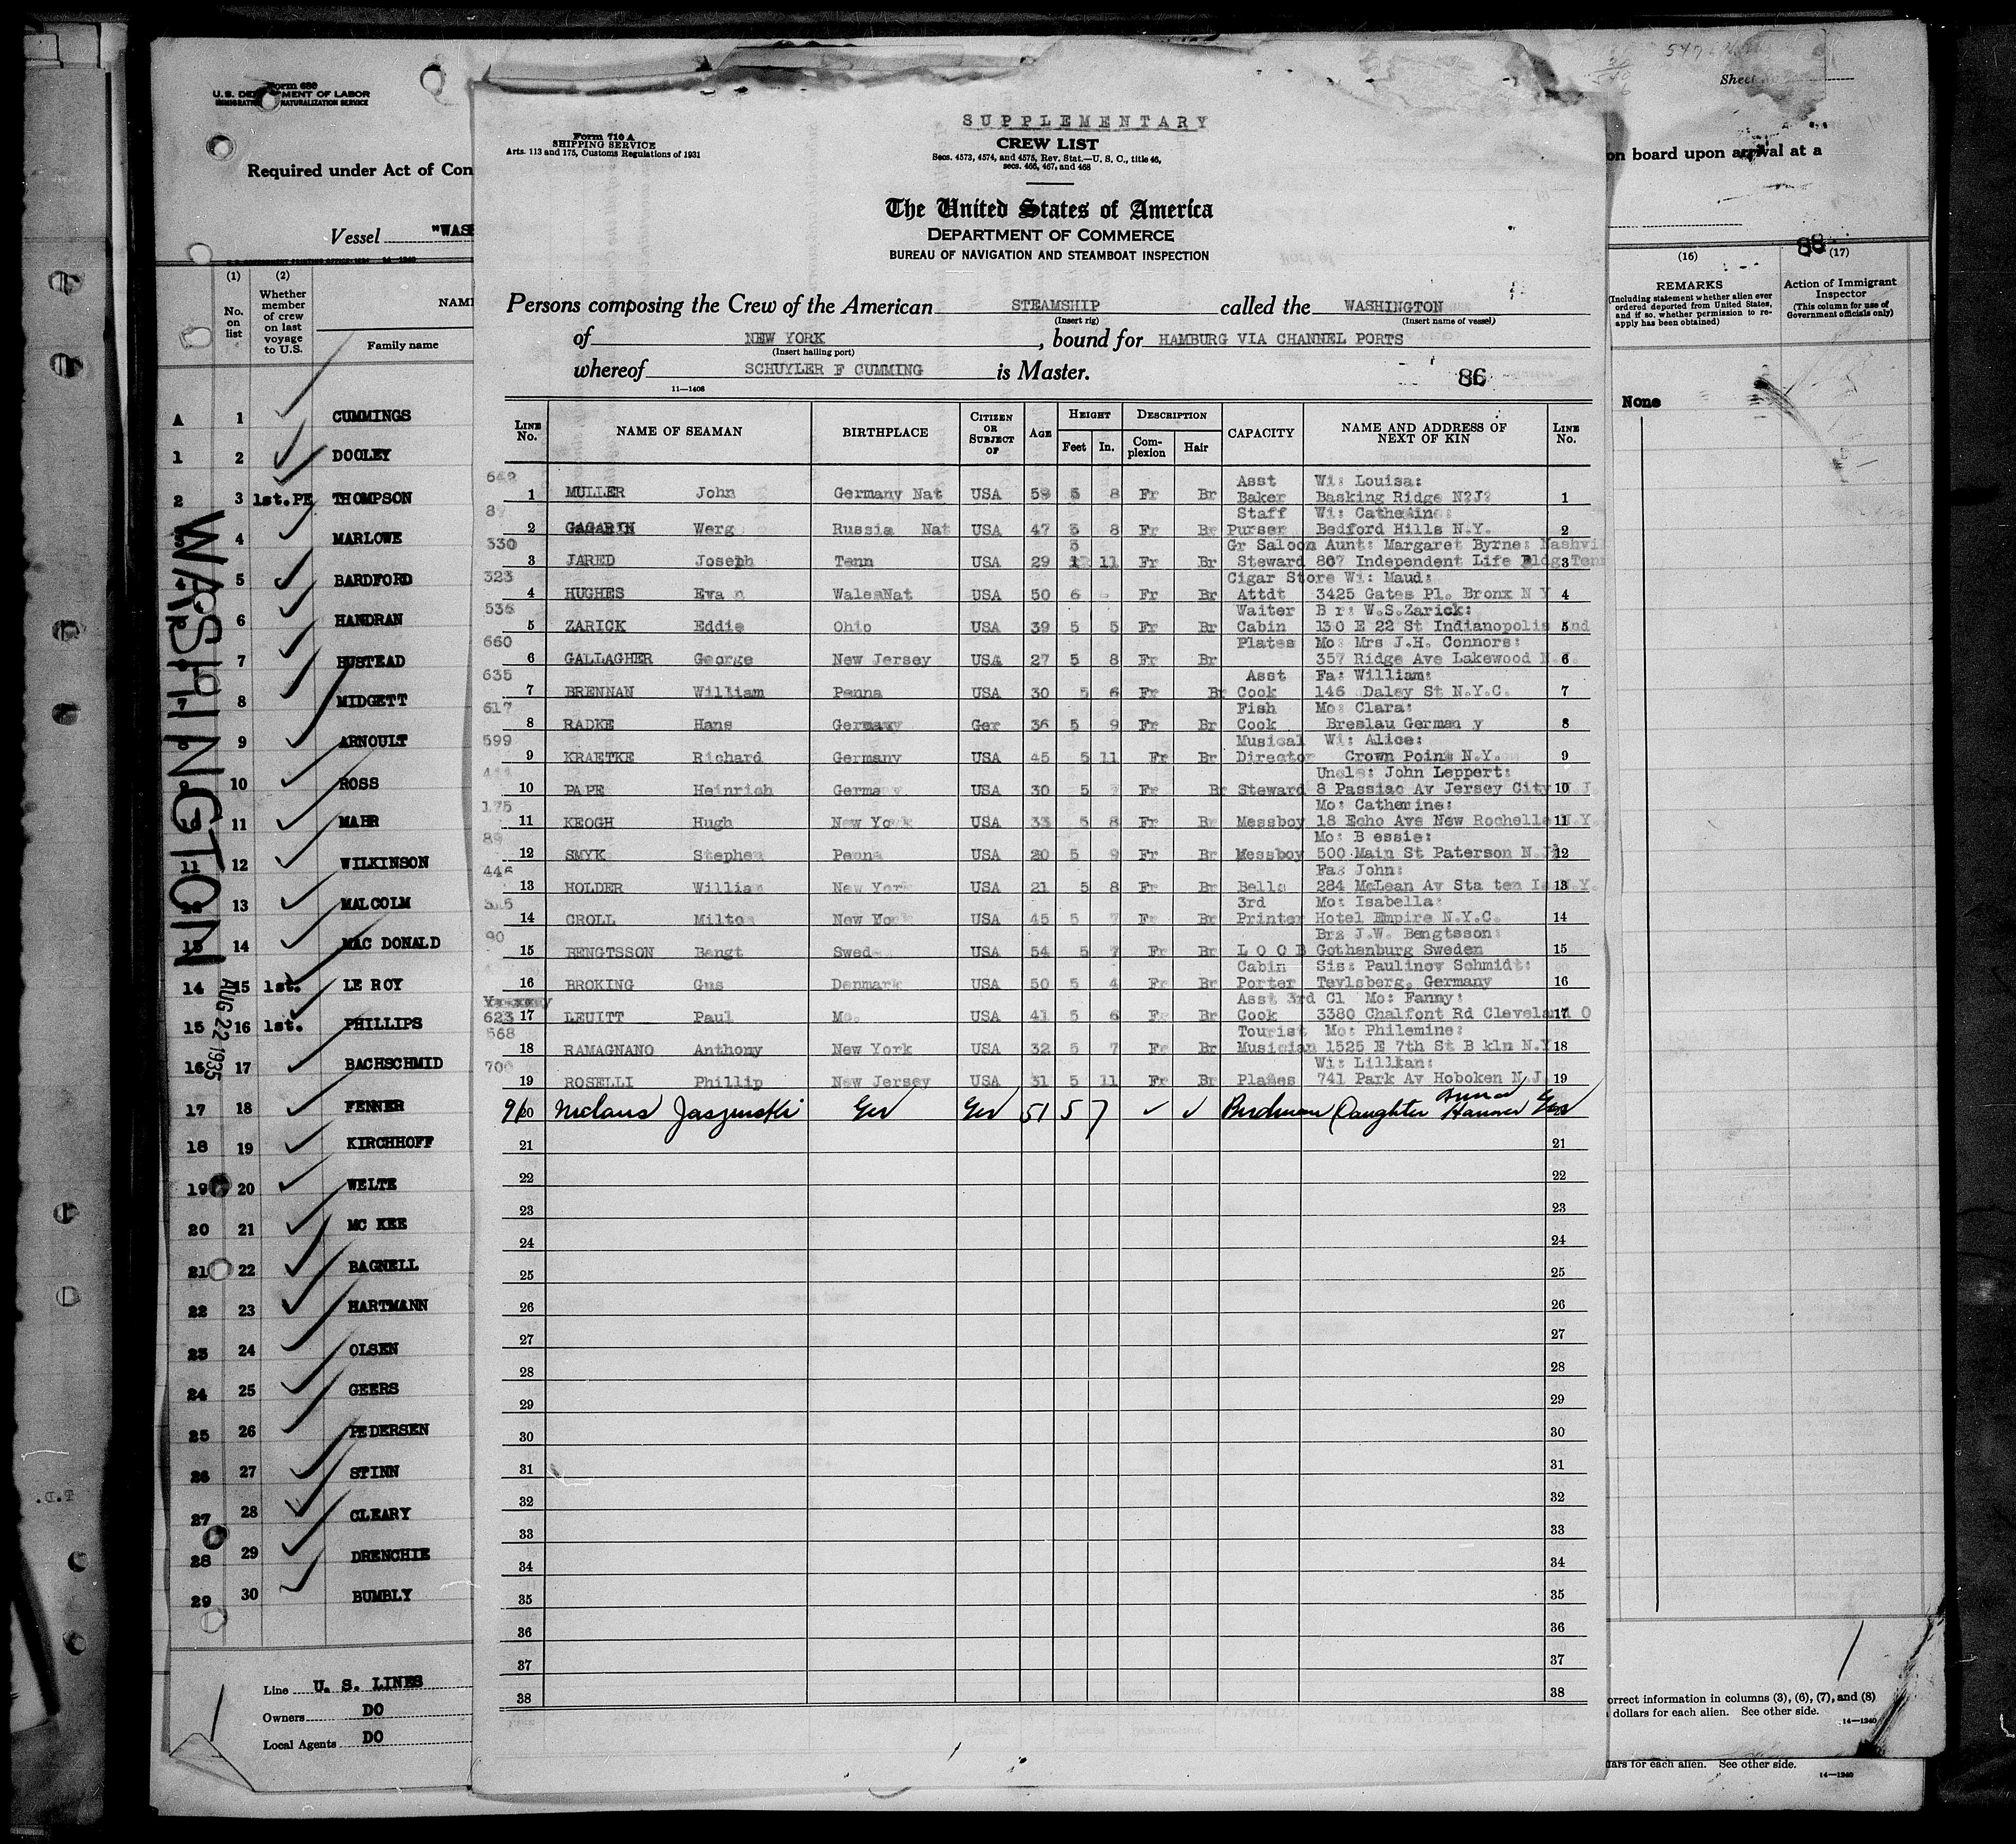 Form 680
U.S. DEPARTMENT OF LABOR
IMMIGRATION NATURALIZATION SERVICE
Required under Act of Con
Vessel "WASH
(1) (2)
No. on list
Whether member of crew on last voyage to U.S.
NAME
Family name
A 1 CUMMINGS
1 2 DOOLEY
2 3 1st.PE THOMPSON
4 MARLOWE
5 BARDFORD
6 HANDRAN
7 HUSTEAD
7 8 MIDGETT
9 ARNOULT
10 ROSS
10 11 MAHR
11 12 WILKINSON
13 MALCOLM
13 14 MAC DONALD
14 15 1st. LE ROY
15 16 1st. PHILLIPS
16 17 BACHSCHMID
17 18 FENNER
18 19 KIRCHHOFF
19 20 WELTE
20 21 MC KEE
21 22 BAGNELL
22 23 HARTMANN
23 24 OLSEN
24 25 GEERS
25 26 PEDERSEN
26 27 STINN
27 28 CLEARY
28 29 DRENCHIE
29 30 BUMBLY
WASHINGTON
AUG 22 1935
Line U. S. LINES
Owners DO
Local Agents DO
SUPPLEMENTARY
Form 710 A
SHIPPING SERVICE
Arts. 113 and 175, Customs Regulations of 1931
CREW LIST
Secs. 4573, 4574, and 4575, Rev. Stat.—U. S. C., title 46,
secs. 466, 467, and 468
The United States of America
DEPARTMENT OF COMMERCE
BUREAU OF NAVIGATION AND STEAMBOAT INSPECTION
Persons composing the Crew of the American STEAMSHIP called the WASHINGTON
(Insert rig) (Insert name of vessel)
of NEW YORK, bound for HAMBURG VIA CHANNEL PORTS
(Insert hailing port)
whereof SCHUYLER F CUMMING is Master.
11—1408
86
LINE No. NAME OF SEAMAN BIRTHPLACE CITIZEN OR SUBJECT OF AGE HEIGHT Feet In. DESCRIPTION Complexion Hair CAPACITY NAME AND ADDRESS OF NEXT OF KIN LINE No.
642 Asst Wi: Louisa:
1 MULLER John Germany Nat USA 59 5 8 Fr Br Baker Basking Ridge N?J? 1
Staff Wi: Catheine:
2 GAGARIN Werg Russia Nat USA 47 5 8 Fr Br Purser Bedford Hills N.Y. 2
330 5 Gr Saloon Aunt: Margaret Byrne: Nashvi
3 JARED Joseph Tenn USA 29 11 Fr Br Steward 867 Independent Life Bldg Tenn 3
323 Cigar Store Wi: Maud:
4 HUGHES Evan WalesNat USA 50 6 Fr Br Attdt 3425 Gates Pl. Bronx N Y 4
536 Waiter B r: W.S.Zarick:
5 ZARICK Eddie Ohio USA 39 5 5 Fr Br Cabin 130 E 22 St Indianopolis Ind 5
660 Plates Mo: Mrs J.H. Connors:
6 GALLAGHER George New Jersey USA 27 5 8 Fr Br 357 Ridge Ave Lakewood N.J. 6
635 Asst Fa: William:
7 BRENNAN William Penna USA 30 5 6 Fr Br Cook 146 Daley St N.Y.C. 7
617 Fish Mo: Clara:
8 RADKE Hans Germany Ger 36 5 9 Fr Br Cook Breslau German y 8
599 Musical Wi: Alice:
9 KRAETKE Richard Germany USA 45 5 11 Fr Br Director Crown Point N.Y. 9
Uncle: John Leppert:
10 PAPE Heinrich Germany USA 30 5 7 Fr Br Steward 8 Passiac Av Jersey City N.J 10
175 Mo: Catherine:
11 KEOGH Hugh New York USA 33 5 8 Fr Br Messboy 18 Echo Ave New Rochelle N.Y. 11
89 Mo: B essie:
12 SMYK Stephen Penna USA 20 5 9 Fr Br Messboy 500 Main St Paterson N.J? 12
446 Fa: John:
13 HOLDER William New York USA 21 5 8 Fr Br Bells 284 McLean Av Sta ten Is N.Y. 13
3rd Mo: Isabella:
14 CROLL Milton New York USA 45 5 7 Fr Br Printer Hotel Empire N.Y.C. 14
90 Br: J.W. Bengtsson:
15 BENGTSSON Bengt Swed USA 54 5 7 Fr Br L O O B Gothenburg Sweden 15
Cabin Sis: Paulinov Schmidt:
16 BROKING Gus Denmark USA 50 5 4 Fr Br Porter Tevlsberg, Germany 16
Asst 3rd Cl Mo: Fanny:
623 17 LEUITT Paul Mo. USA 41 5 6 Fr Br Cook 3380 Chalfont Rd Cleveland O 17
568 Tourist Mo: Philemine:
18 RAMAGNANO Anthony New York USA 32 5 7 Fr Br Musician 1525 E 7th St B kln N.Y 18
700 Wi: Lillian:
19 ROSELLI Phillip New Jersey USA 31 5 11 Fr Br Plates 741 Park Av Hoboken N.J. 19
91 20 Niclaus Ger Ger 51 5 7 ✓ ✓ Daughter Ger
21 21
22 22
23 23
24 24
25 25
26 26
27 27
28 28
29 29
30 30
31 31
32 32
33 33
34 34
35 35
36 36
37 37
38 38
Sheet
on board upon arrival at a
88
(16) (17)
REMARKS
(Including statement whether alien ever ordered deported from United States, and if so, whether permission to reapply has been obtained)
Action of Immigrant Inspector
(This column for use of Government officials only)
None
orrect information in columns (3), (6), (7), and (8)
dollars for each alien. See other side.
14—1240
lars for each alien. See other side.
14—1240